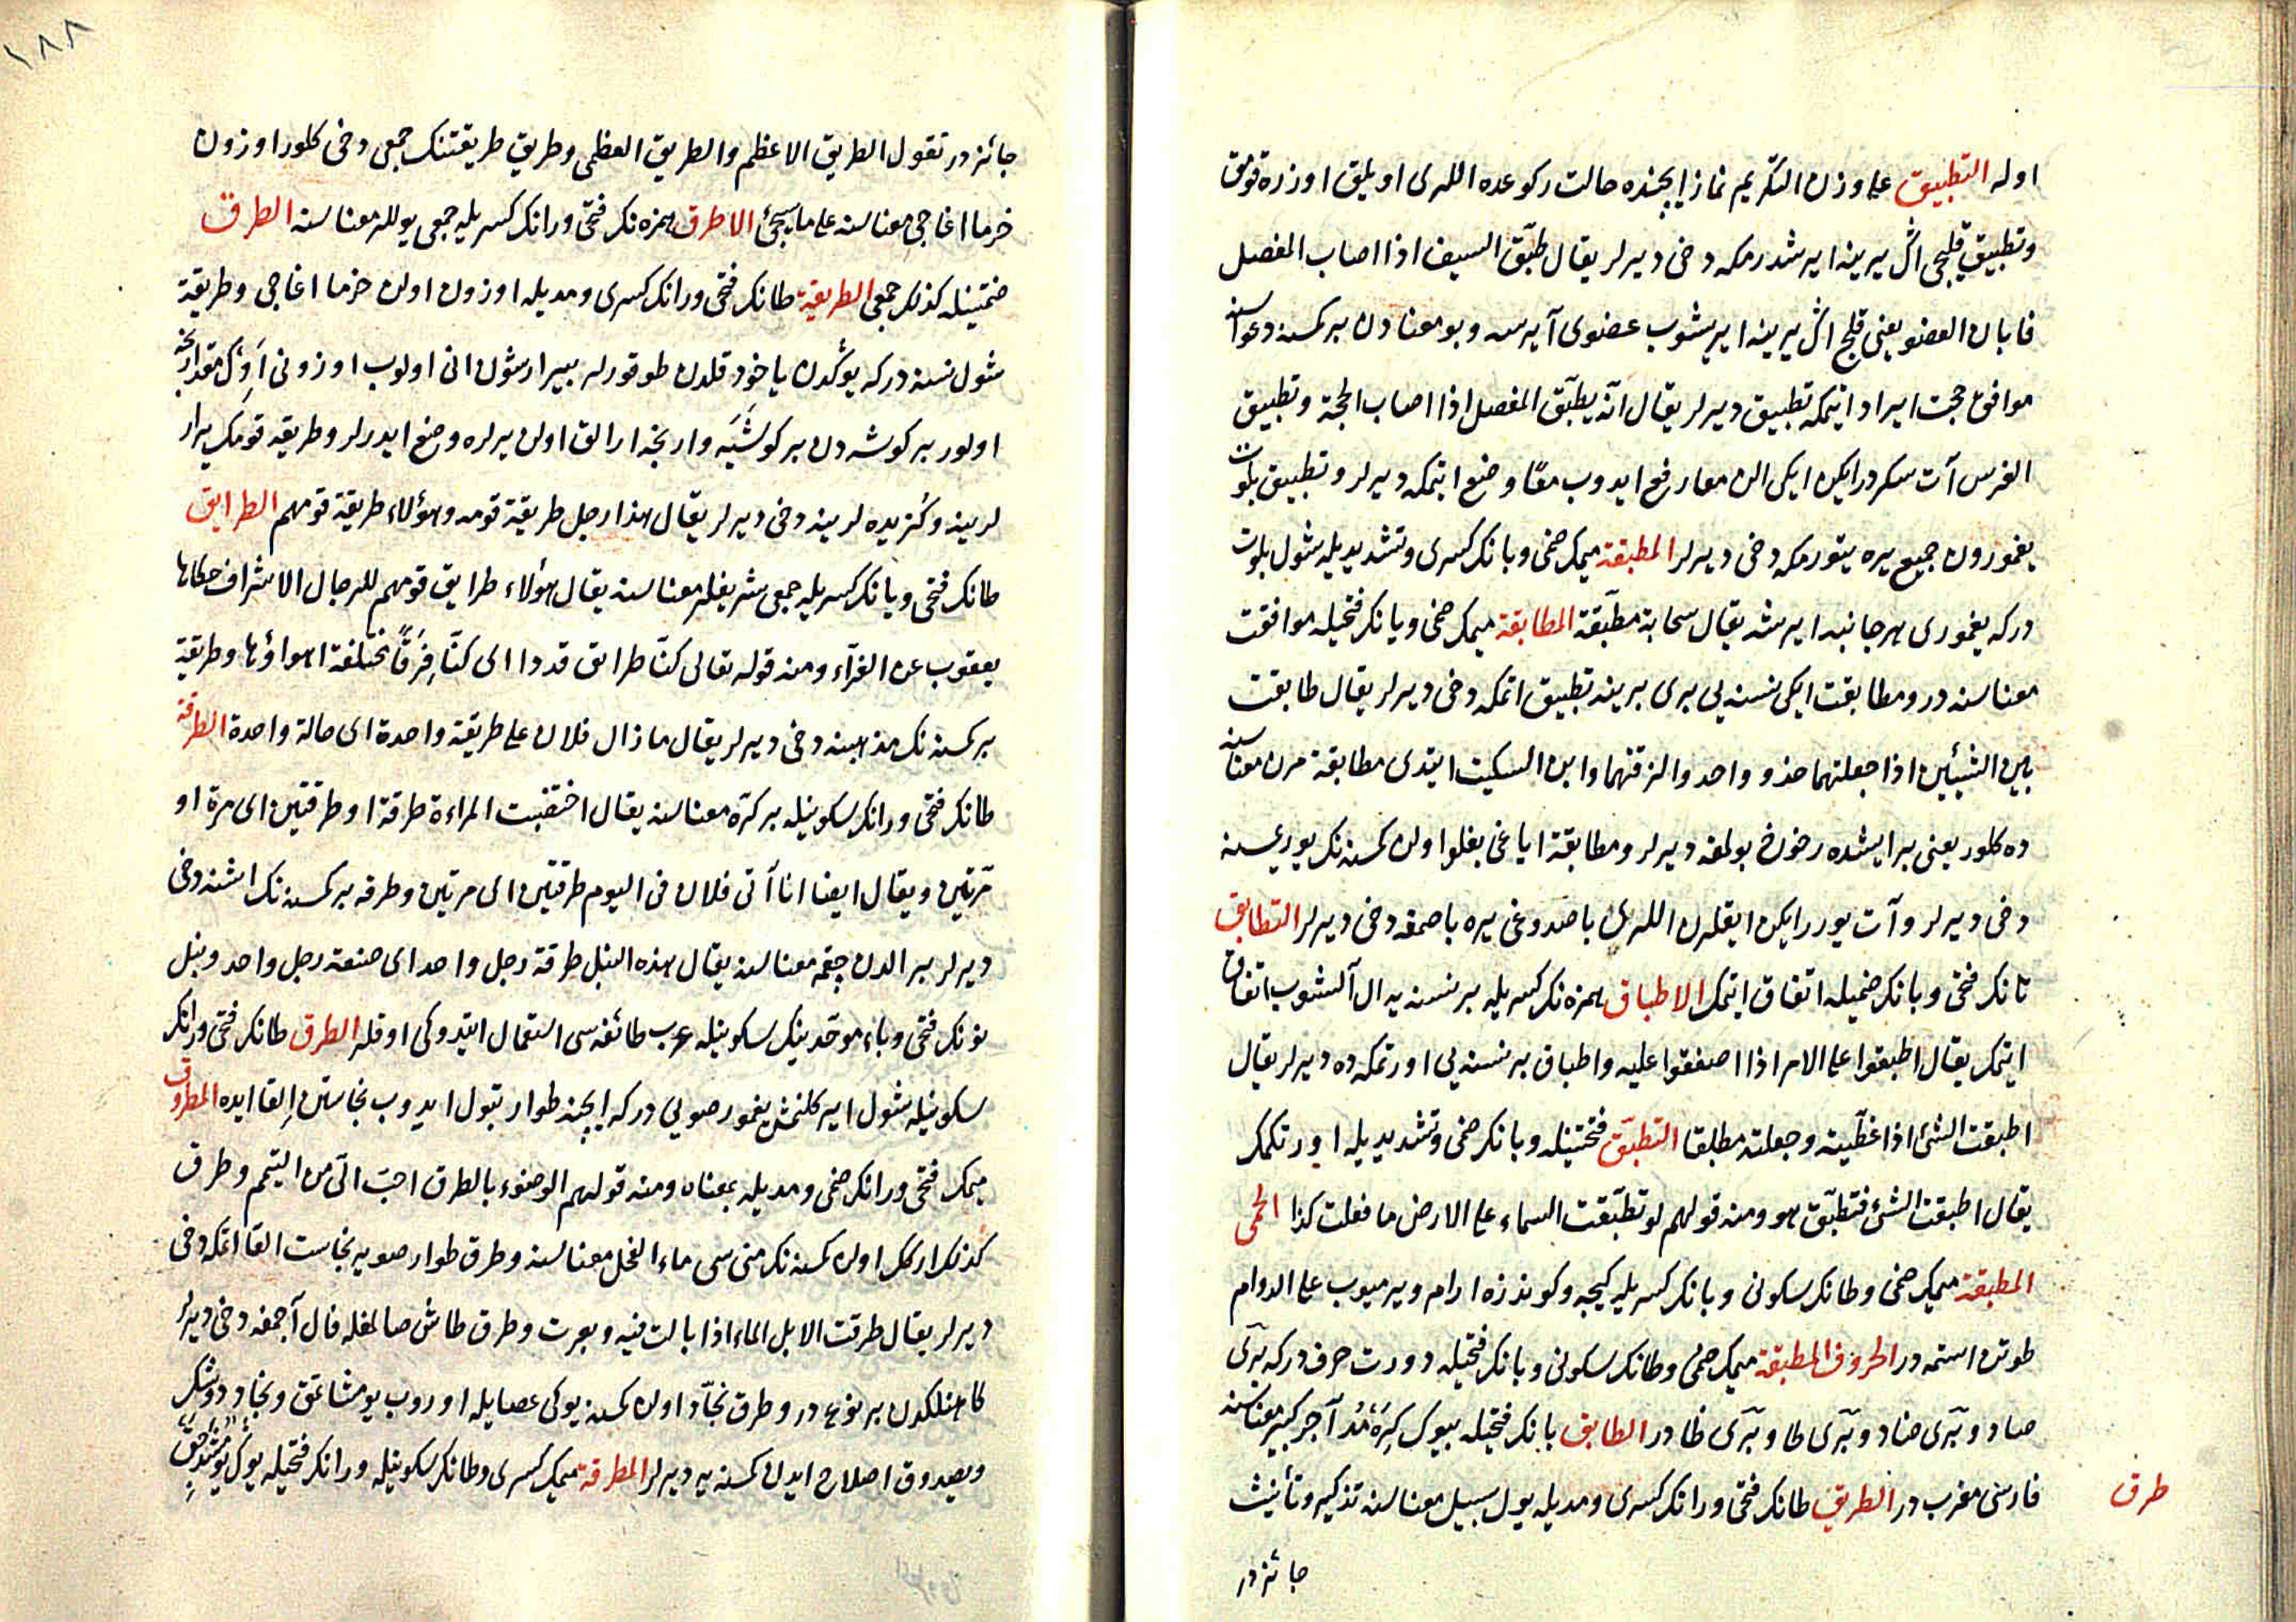 اوله التطبيق على وزن التكريم نماز ايچنده حالت ركوعده اللرى اويلق اوزره قومق
وتطبيق قليجى اڭ يرينه ايرشدرمكه دخى ديرلر يقال طبّق السيف اذا اصاب المفصل
فابان العضو يعنى قلج اڭ يرينه ايريشوب عضوى آيرسه وبو معنادن بر كمسنه دعواسنه
موافق حجت ايراد ايتمكه تطبيق ديرلر يقال انّه يطبّق المفصل اذا اصاب الحجة وتطبيق
الفرس آت سكردرايكن ايكى الن معا رفع ايدوب معًا وضع ايتمكه ديرلر وتطبيق بلوت
يغمورون جميع يره يتورمكه دخى ديرلر المطبقة ميمك ضمى وبانك كسرى وتشديديله شول بلوت
دركه يغمورى هر جانبه ايرشه يقال سحابة مطبّقة المطابقة ميمك ضمى وبانك فتحيله موافقت
معناسنه در ومطابقت ايكى نسنه يى برى برينه تطبيق اتمكه دخى ديرلر يقال طابقت
بين الشيئين اذا جعلتهما حذو واحد والزقتهما وابن السكيت ايتدى مطابقة مرن معناسنه
ده كلور يعنى بر ايشده رضوخ بولمغه ديرلر ومطابقة اياغى بغلو اولن كمسنه نك يوريسنه
دخى ديرلر وآت يوررايكن ايقلرن اللرى باصدوغى يره باصمغه دخى ديرلر التطابق
تانك فتحى وبانك ضميله اتفاق ايتمك الاطباق همزه نك كسريله بر نسنه يه ال آلشوب اتفاق
ايتمك يقال اطبقوا على الامر اذا اصفقوا عليه واطباق بر نسنه يى اورتمكه ده ديرلر يقال
اطبقت الشئ اذا غطّيته وجعلته مطلقا التطبّق فتحتينله وبانك ضمى وتشديديله اورتكمك
يقال اطبقت الشئ فتطبّق هو ومنه قولهم لو تطبّقت السماء على الارض ما فعلت كذا الحمى
المطبقة ميمك ضمى وطانك سكونى وبانك كسريله كيجه وكوندزه ارام ويرميوب على الدوام
طوتن استمه در الحروف المطبقة ميمك ضمى وطانك سكونى وبانك فتحيله دورت حرف دركه برى
صاد وبرى ضاد وبرى طا وبرى ظا در الطابق بانك فتحيله بيوك كره مد آجر كبير معناسنه
فارسى معرب در الطريق طانك فتحى ورانك كسرى ومديله يول سبيل معناسنه تذكير وتأنيث
طرق
جائزدر
١٨٨
جائزدر تقول الطريق الاعظم والطريق العظمى وطريق طريقتنك جمعى دخى كلور اوزون
خرما اغاجى معناسنه على ما سيجئ الاطرق همزه نك فتحى ورانك كسريله جمعى يوللر معناسنه الطرق
ضمتينله كذلك جمعى الطريقة طانك فتحى ورانك كسرى ومديله اوزون اولن خرما اغاجى وطريقة
شول نسنه دركه يوڭدن ياخود قلدن طوقورلر بيرارشون انى اولوب اوزونى اوڭ مقدارنجه
اولور بر كوشه دن بر كوشيه وارنجه ارالق اولن يرلره وضع ايدرلر وطريقه قومك يرار
لرينه وكزيده لرينه دخى ديرلر يقال هذا رجل طريقة قومه وهؤلاء طريقة قومهم الطرايق
طانك فتحى ويانك كسريله جمعى شريفلر معناسنه يقال هؤلاء طرايق قومهم للرجال الاشراف حكاها
يعقوب عن الفرّاء ومنه قوله تعالى كنّا طرائق قددا اى كنّا فِرَقًا مختلفة اهواؤنا وطريقة
بر كمسنه نك مذهبنه دخى ديرلر يقال ما زال فلان على طريقة واحدة اى حالة واحدة الطرقة
طانك فتحى ورانك سكونيله بر كرّه معناسنه يقال اختضبت المراءة طرقة او طرقتين اى مرة او
مرّتين ويقال ايضا انا آتى فلان فى اليوم طرقتين اى مرتين وطرقه بر كمسنه نك اشنه دخى
ديرلر بر الدن چقمه معناسنه يقال هذه النبل طرقة رجل واحد اى صنعة رجل واحد ونبل
نونك فتحى وباء موحّدينك سكونيله عرب طائفه سى استعمال ايتدوكى اوقلر الطرق طانك فتحى ورانك
سكونيله شول اير كلنمش يغمور صويى دركه ايچنه طوار تبول ايدوب نجاستن اِلقا ايده المطروق
ميمك فتحى ورانك ضمى ومديله بمعناه ومنه قولهم الوضوء بالطرق احبّ الىّ من التيمم وطرق
كذلك اركك اولن كمسنه نك منى سى ماء الفحل معناسنه وطرق طوار صويه نجاست القا اتمكه دخى
ديرلر يقال طرقت الابل الماء اذا بالت فيه وبعرت وطرق طاش صالمغله فال آچمغه دخى ديرلر
كاهنلكدن بر نوع در وطرق نجّاد اولن كمسنه يوكى عصايله اوروب يومشاتمق ونجاد دوشك
ويصدوق اصلاح ايدن كمسنه يه ديرلر المطرقة ميمك كسرى وطانك سكونيله ورانك فتحيله يوڭ